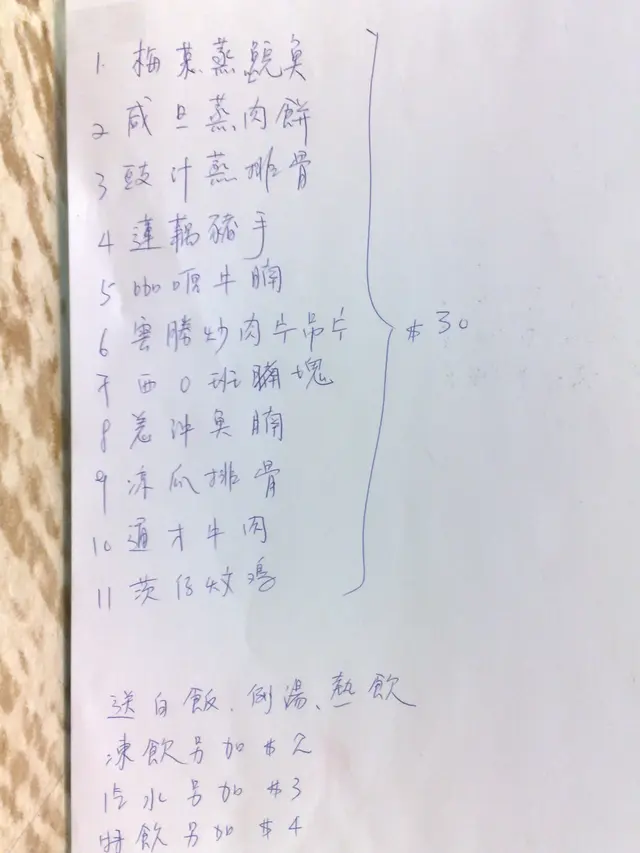 1. 梅菜蒸鯇魚
2 咸旦蒸肉餅
3 豉汁蒸排骨
4 蓮藕豬手
5 咖喱牛腩
6 雲勝炒肉片吊片
7 西0班腩塊
8 魚腩
9 凉瓜排骨
10 通才牛肉
11 茨仔炆鸡
$30
送白飯、例湯、熱飲
凍飲另加$2
汽水另加$3
特飲另加$4